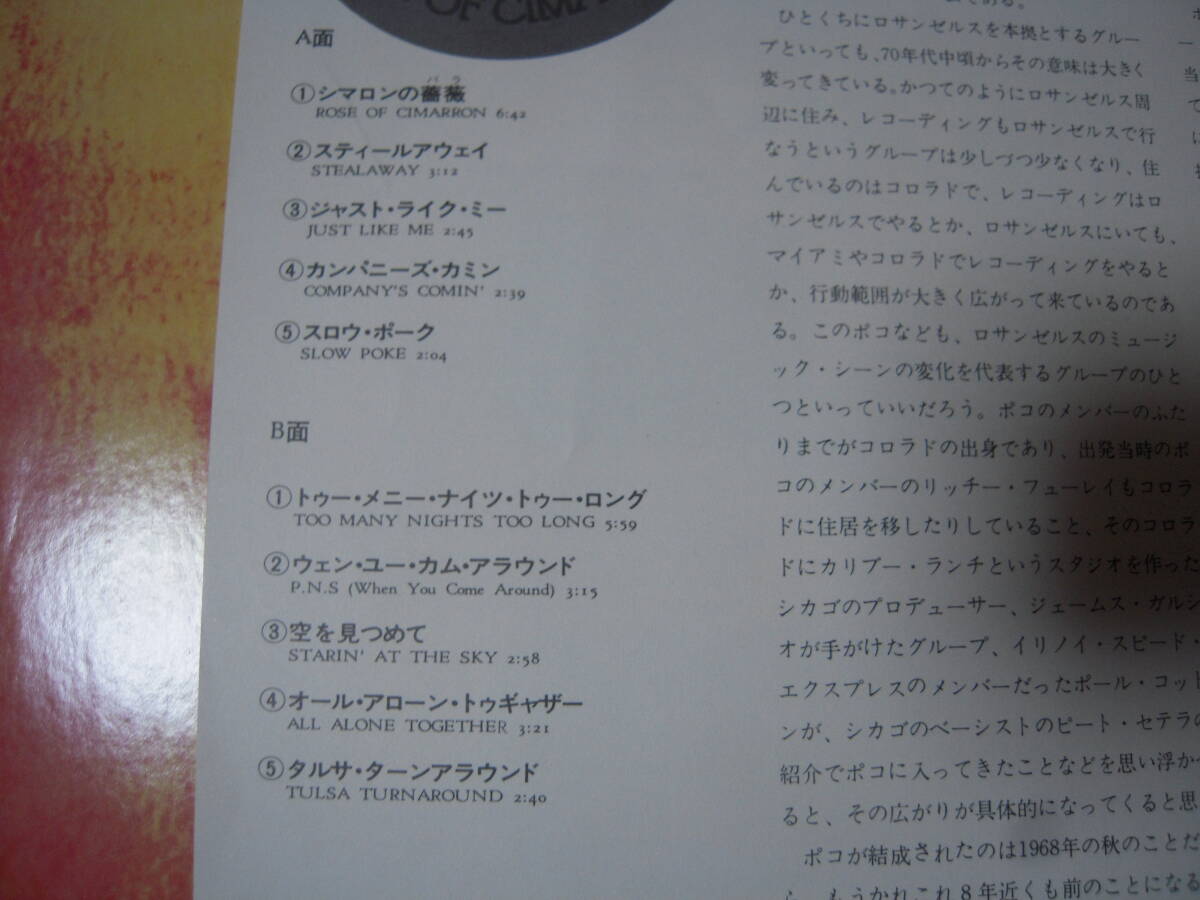 OF CIMA
A面
バラ
①シマロンの薔薇
ROSE OF CIMARRON 6:42
②スティールアウェイ
STEALAWAY 3:12
③ジャスト・ライク・ミー
JUST LIKE ME 2:45
④カンパニーズ・カミン
COMPANY'S COMIN' 2:39
⑤スロウ・ポーク
SLOW POKE 2:04
B面
①トゥー・メニー・ナイツ・トゥー・ロング
TOO MANY NIGHTS TOO LONG 5:59
②ウェン・ユー・カム・アラウンド
P.N.S (When You Come Around) 3:15
③空を見つめて
STARIN' AT THE SKY 2:58
④オール・アローン・トゥギャザー
ALL ALONE TOGETHER 3:21
⑤タルサ・ターンアラウンド
TULSA TURNAROUND 2:40
である。
ひとくちにロサンゼルスを本拠とするグルー
プといっても、70年代中頃からその意味は大きく
変ってきている。かつてのようにロサンゼルス周
辺に住み、レコーディングもロサンゼルスで行
なうというグループは少しづつ少なくなり、住
んでいるのはコロラドで、レコーディングはロ
サンゼルスでやるとか、ロサンゼルスにいても、
マイアミやコロラドでレコーディングをやると
か、行動範囲が大きく広がって来ているのであ
る。このポコなども、ロサンゼルスのミュージ
ック・シーンの変化を代表するグループのひと
つといっていいだろう。ポコのメンバーのふた
りまでがコロラドの出身であり、出発当時のポ
コのメンバーのリッチー・フューレイもコロラ
ドに住居を移したりしていること、そのコロラ
ドにカリブー・ランチというスタジオを作った
シカゴのプロデューサー、ジェームス・ガルシ
オが手がけたグループ、イリノイ・スピード・
エクスプレスのメンバーだったポール・コット
ンが、シカゴのベーシストのピート・セテラの
紹介でポコに入ってきたことなどを思い浮かべ
ると、その広がりが具体的になってくると思
ポコが結成されたのは1968年の秋のことだ
ら、もうかれこれ8年近くも前のことになる